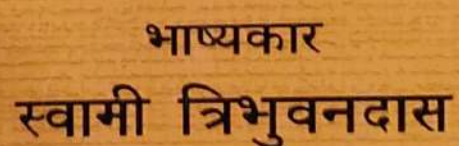 भाष्यकार
स्वामी त्रिभुवनदास